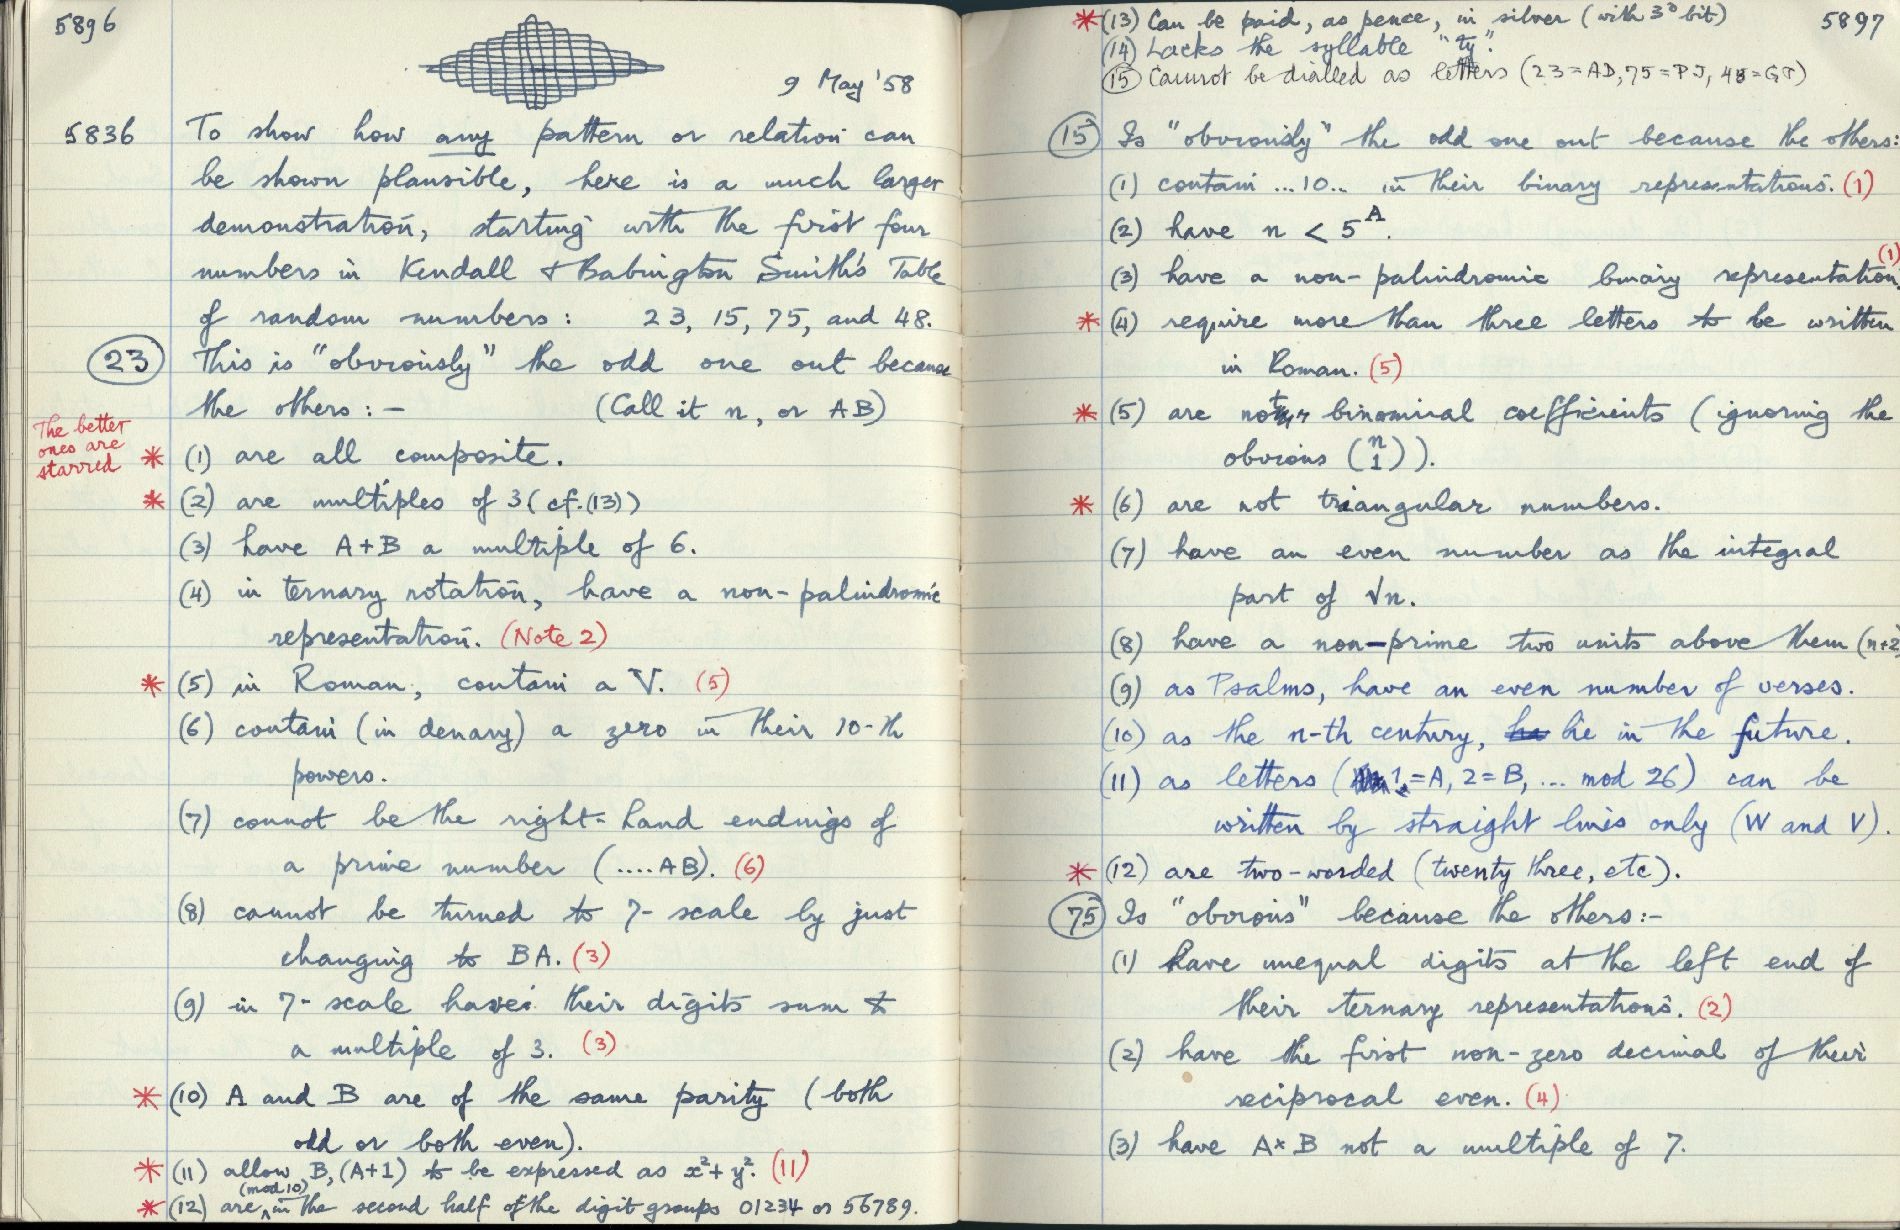 5896
9 May '58
5836 To show how any pattern or relation can
be shown plausible, here is a much larger
demonstration, starting with the first four
numbers in Kendall & Babington Smith's Table
of random numbers: 23, 15, 75, and 48.
23 This is "obviously" the odd one out because
the others: — (Call it n, or AB)
The better
ones are
starred
* (1) are all composite.
* (2) are multiples of 3 (cf. (13))
(3) have A+B a multiple of 6.
(4) in ternary notation, have a non-palindromic
representation. (Note 2)
* (5) in Roman, contain a V. (5)
(6) contain (in denary) a zero in their 10-th
powers.
(7) connot be the right-hand endings of
a prime number (....AB). (6)
(8) cannot be turned to 7-scale by just
changing to BA. (3)
(9) in 7-scale have their digits sum
a multiple of 3. (3)
* (10) A and B are of the same parity (both
odd or both even).
* (11) allow B, (A+1) to be expressed as x²+y². (11)
(mod 10)
* (12) are ^ in the second half of the digit groups 01234 or 56789.
5897
* (13) Can be paid, as pence, in silver (with 3d bit)
(14) Lacks the syllable "ty".
(15) Cannot be dialled as letters (23=AD, 75=PJ, 48=GT)
15 Is "obviously" the odd one out because the others:
(1) contain ...10.. in their binary representations. (1)
(2) have n < 5^A.
(3) have a non-palindromic binary representation. (1)
* (4) require more than three letters to be written
in Roman. (5)
* (5) are not binomial coefficients (ignoring the
obvious (n 1)).
* (6) are not triangular numbers.
(7) have an even number as the integral
part of √n.
(8) have a non-prime two units above them (n+2)
(9) as Psalms, have an even number of verses.
(10) as the n-th century, lie in the future.
(11) as letters (1=A, 2=B, ... mod 26) can be
written by straight lines only (W and V).
* (12) are two-worded (twenty three, etc).
75 Is "obvious" because the others:—
(1) have unequal digits at the left end of
their ternary representations. (2)
(2) have the first non-zero decimal of their
reciprocal even. (4)
(3) have A×B not a multiple of 7.